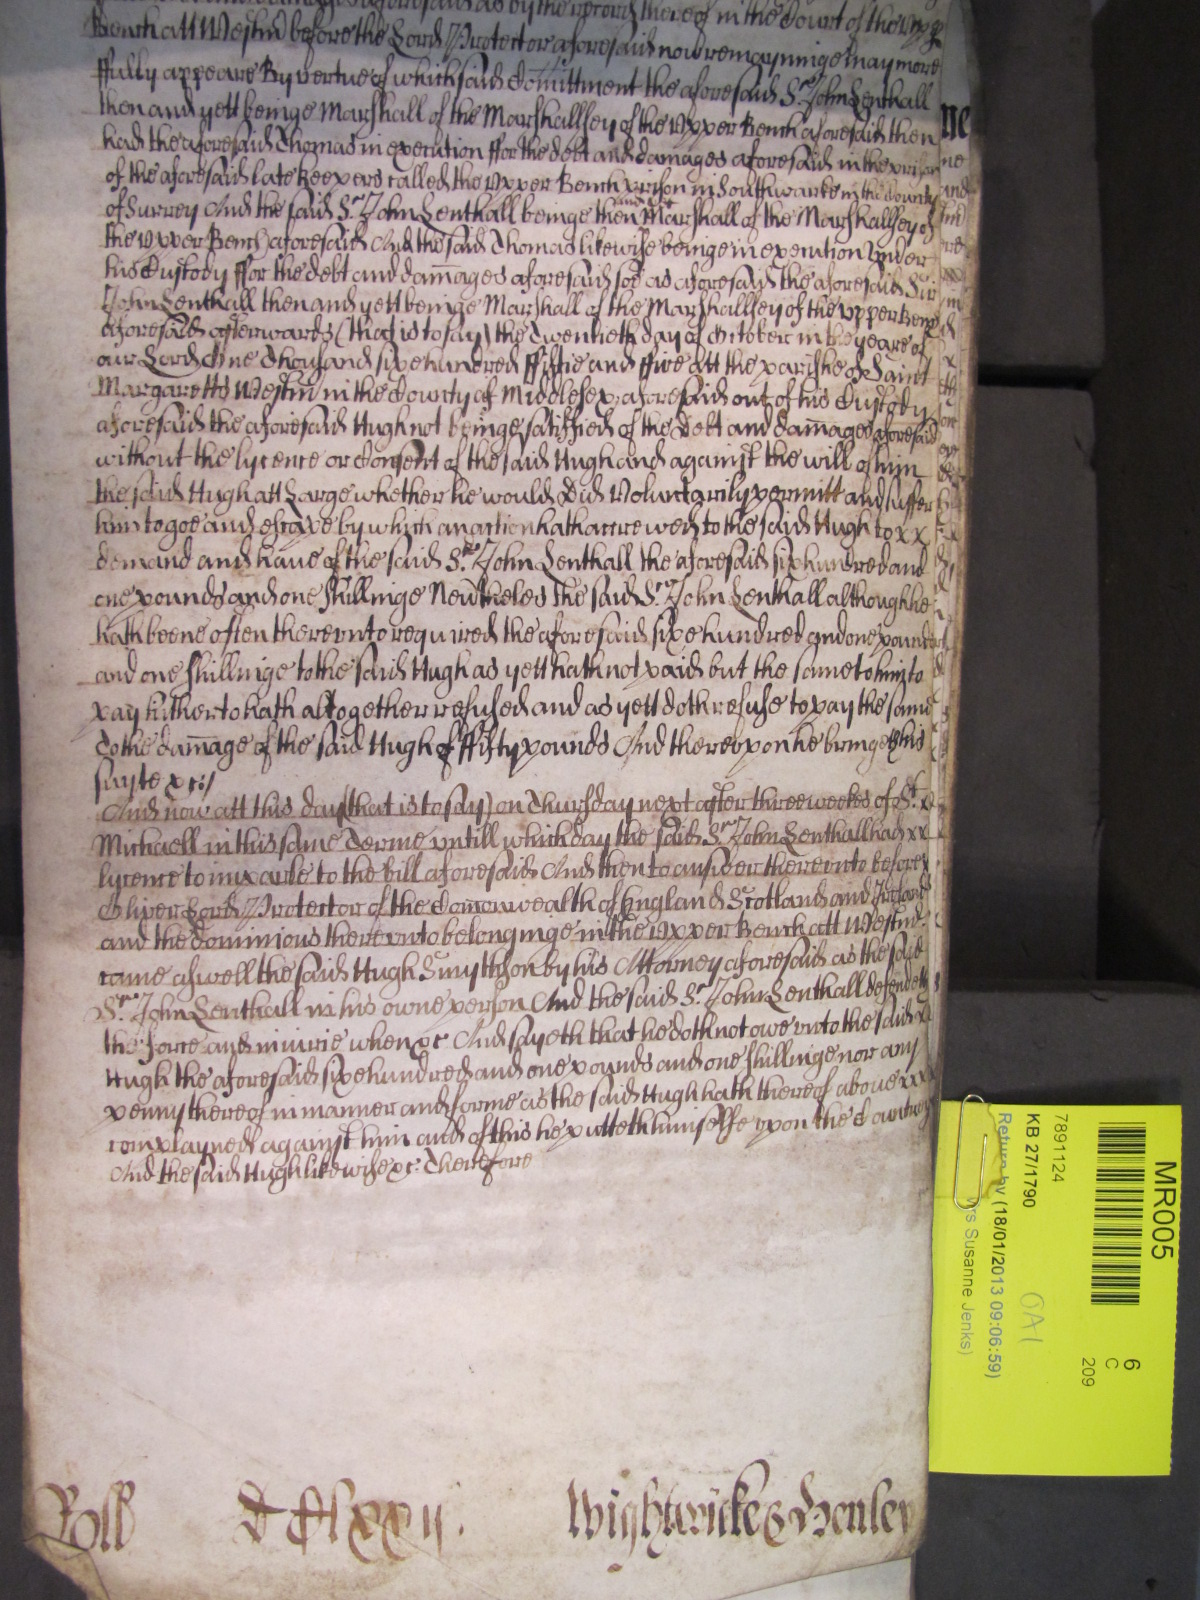 damage aforesaid as by the record thereof in the Court of the upp
Bench att Westm before the Lord Protector aforesaid now remayninge may more
ffully appeare By vertue of which said Comittment the aforesaid Sr John Lenthall
then and yett beinge Marshall of the Marshallsey of the Upper Bench aforesaid then
had the aforesaid Thomas in execution ffor the debt and damages aforesaid in the prison
of the aforesaid late keepers called the Upper Bench prison in Southwarke in the County
of Surrey And the said Sr John Lenthall beinge then and yett Marshall of the Marshallsey of
the Upper Bench aforesaid And the said Thomas likewise beinge in execution under
his Custody ffor the debt and damages aforesaid soe as aforesaid the aforesaid Sir
John Lenthall then and yett beinge Marshall of the Marshallsey of the Upper Bench
aforesaid afterwards (that is to say) the Twentieth day of October in the yeare of
our Lord One Thousand sixe hundred ffiftie and ffive att the parishe of Saint
Margaretts Westm in the County of Middlesex aforesaid out of his Custody
aforesaid the aforesaid Hugh not beinge satisfied of the Debt and damages aforesaid
without the lycence or Consent of the said Hugh and against the will of him
the said Hugh att Large whether he would Did Voluntarily permitt and suffer
him to goe and escape by which an action hath accrewed to the said Hugh to xx
demand and have of the said Sr John Lenthall the aforesaid six hundred and
one pounds and one shillinge Neverthelesse the said Sr John Lenthall although he
hath beene often thereunto required the aforesaid sixe hundred and one pounds
and one shillinge to the said Hugh as yett hath not paid but the same to him to
pay hitherto hath altogether refused and as yett doth refuse to pay the same
To the damage of the said Hugh of ffifty pounds And thereupon he bringeth this
suyte &c:/
And now att this day (that is to say) on Thursday next after three weekes of St
Michaell in this same Terme untill which day the said Sr John Lenthall had xx
lycence to imparle to the bill aforesaid And then to answer thereunto before
Oliver Lord Protector of the Comonwealth of England Scotland and Ireland
and the dominions thereunto belonginge in the Upper Bench att Westm
came aswell the said Hugh Smythson by his Attorney aforesaid as the said
Sr John Lenthall in his owne person And the said Sr John Lenthall defendeth
the force and iniurie when &c And sayeth that he doth not owe unto the said
Hugh the aforesaid sixe hundred and one pounds and one shillinge nor any
penny thereof in manner and forme as the said Hugh hath thereof above xxx
complayned against him and of this he putteth himselfe upon the Cuntrey
And the said Hugh likewise &c: Therefore
Roll
Wightwicke & Henley
MR005
7891124
KB 27/1790
Return by (18/01/2013 09:06:59)
Mrs Susanne Jenks)
OA1
6
C
209